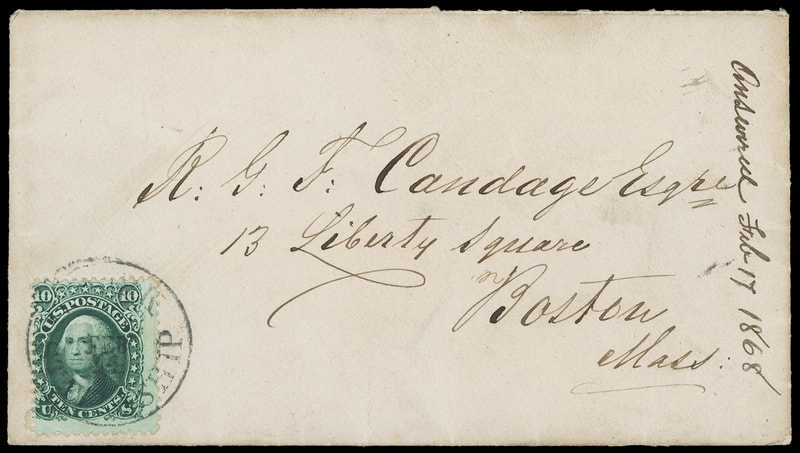 R. G. F. Candage Esqre
13 Liberty Square
Boston
Mass.
Answered Feb 17 1868
10 10
U.S. POSTAGE
TEN CENTS
U S
SHIP